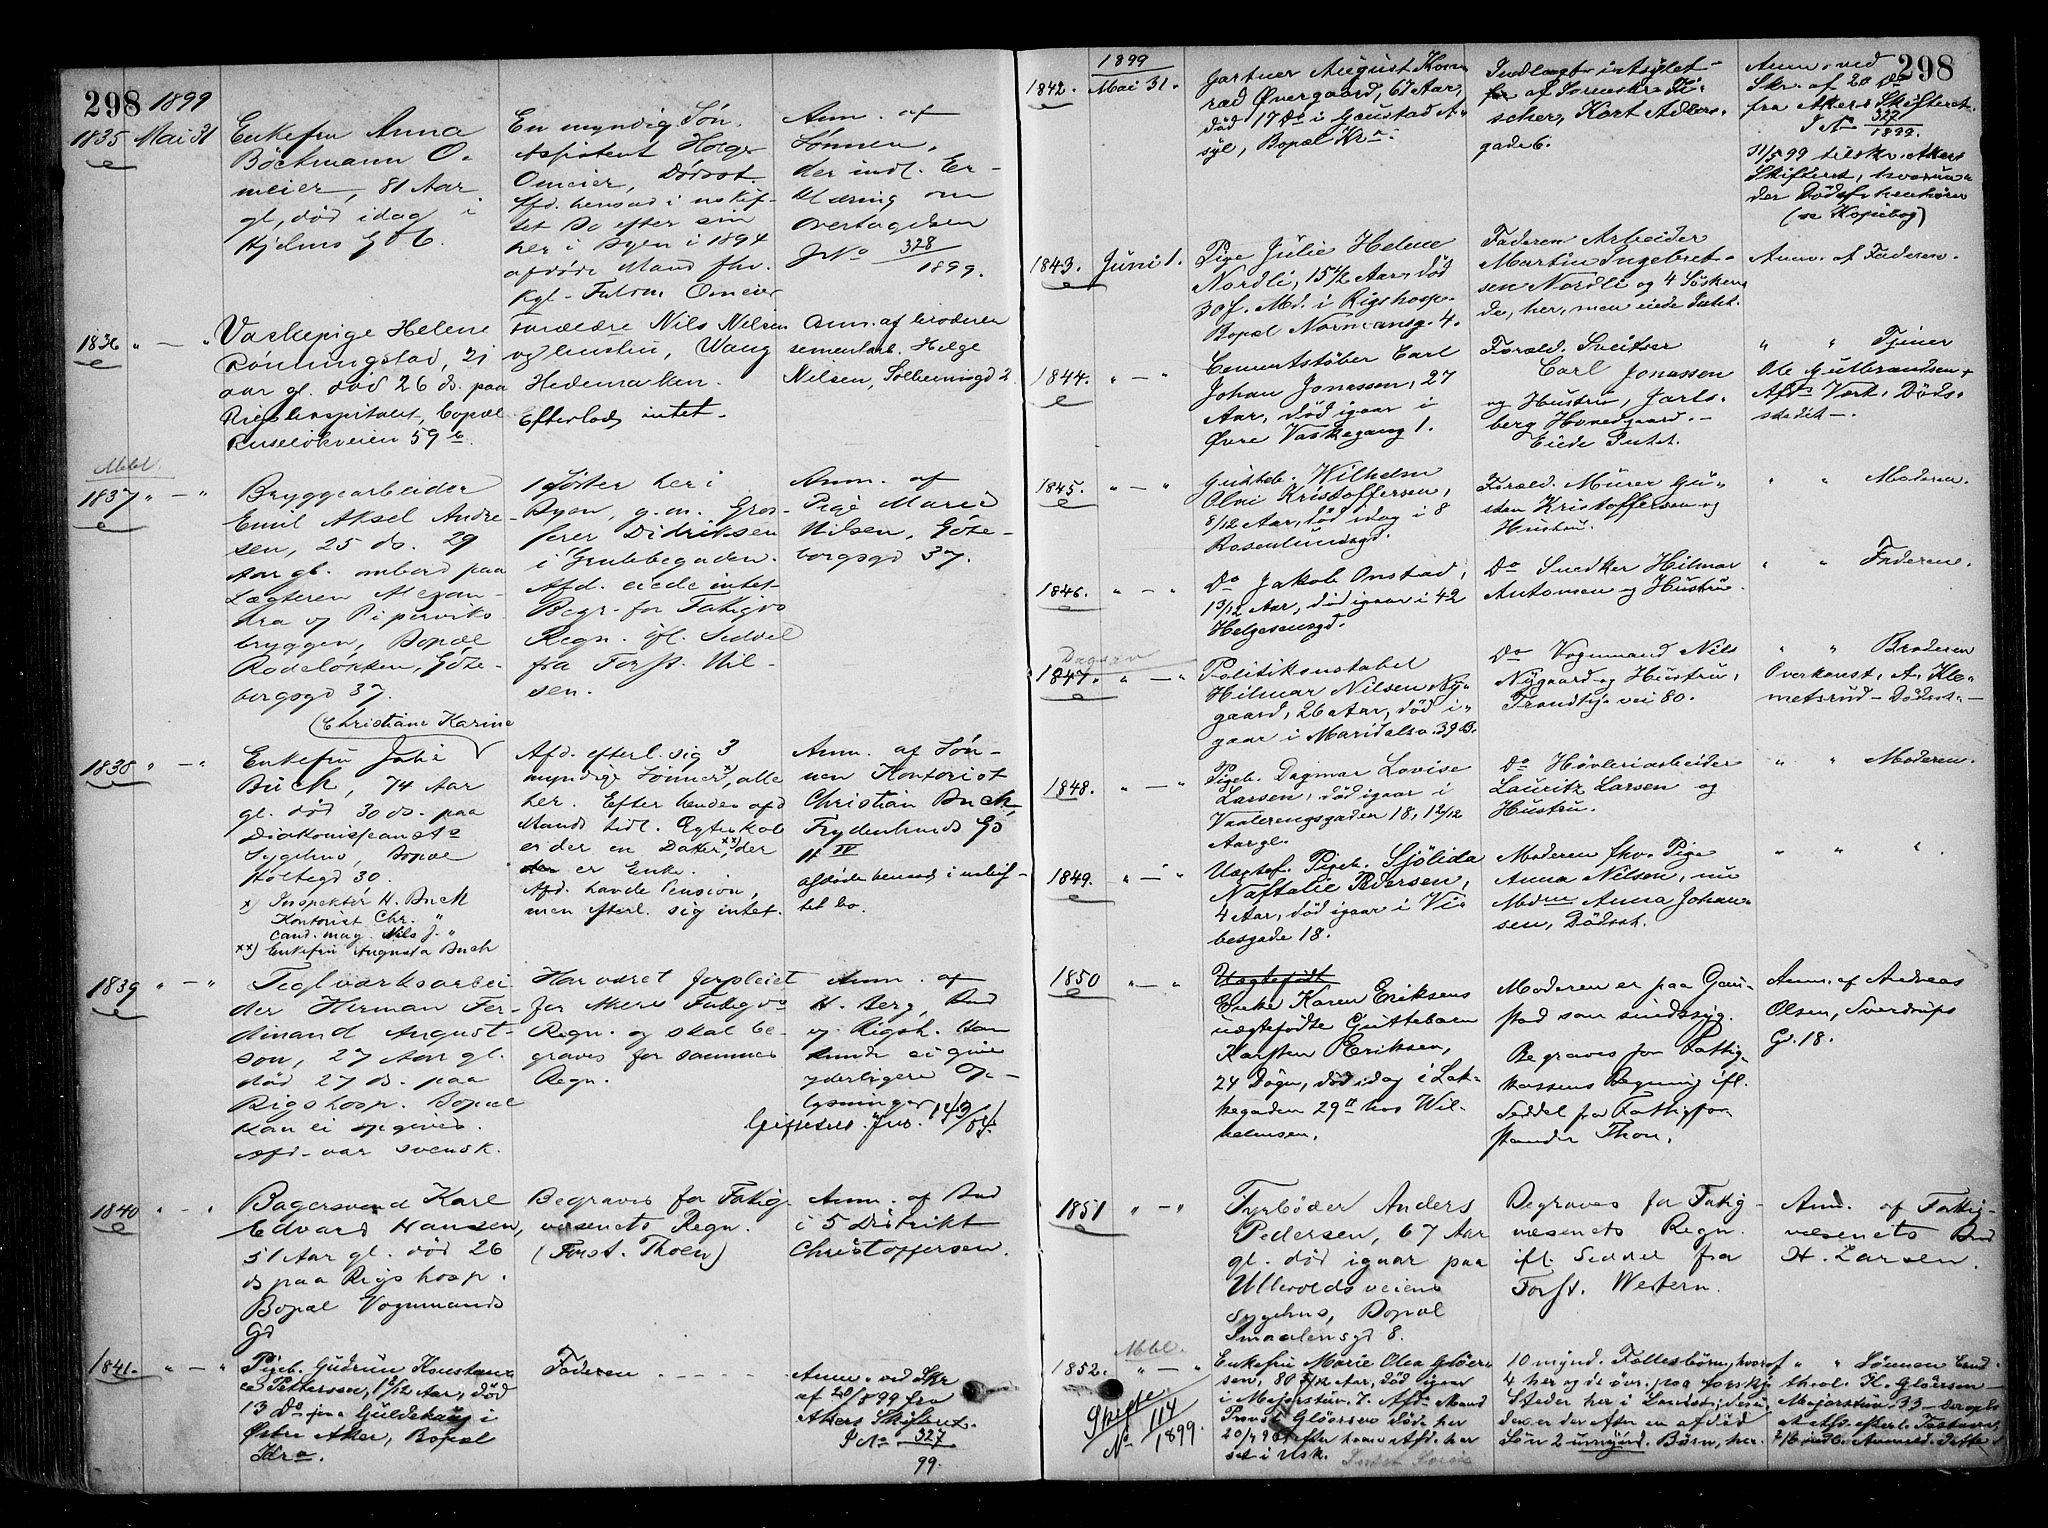 298 1899
1835 Mai 31
Enkefru Anna
Böckmann O-
meier, 81 Aar
gl, død idag i
Hjelms G 6 C.
En myndig Søn,
Assistent Holger
Omeier, Dødsst.
Afd. hensad i uskif-
tet Bo efter sin
her i Byen i 1894
afdøde Mand fhv.
Kgl. Fulm Omeier
Anm. af
Sønnen,
der indl. Er-
klæring om
overtagelsen
JNo 328
1899.
1836 " — "
Vaskepige Helene
Rönningstad, 21
aar gl. død 26 ds. paa
Rigshospitalet, bopæl
Ruselökveien 59 b
Forældre Nils Nilsen
og hustru, Vang
Hedemarken.
Efterlod intet.
Anm. af broderen
sementarb. Helge
Nilsen, Solheimsgd 2
Mbl.
1837 " — "
Bryggearbeider
Emil Aksel Andre-
sen, 25 ds. 29
Aar gl. ombord paa
Lægteren Mexan-
dra og Piperviks-
bryggen, Bopæl
Rodeløkken, Göte-
borgsgd 37.
1 Søster her i
Byen, g. m. Gros-
serer Didriksen
i Grubbegaden.
Afd. eiede intet
Begr. for Fatigvs
Regn. ifl. Seddel
fra Forst. Nil-
sen.
Anm. af
Pige Marie
Nilsen, Göte-
borgsgd 37.
(Christiane Karine
1838 " — "
Enkefru Julie
Buck, 74 Aar
gl. død 30 ds. paa
Diakonisseanst.s
Sygehus, Bopæl
Holtegd 30.
x) Inspektör H. Buck
Kontorist Chr. "
Cand. mag. Nils J. "
xx) Enkefru Augusta Buck
Afd. efterl. sig 3
myndige Sønner x), alle
her. Efter hendes afd
Mands tidl. Egteskab
er der en Datter xx), der
er Enke.
Afd. havde Pension,
men efterl. sig intet.
Anm. af Søn-
nen Kontorist
Christian Buck,
Frydenlunds Gd
11 IV
afdøde hensad i uskif-
tet bo.
1839 " — "
Teglværksarbei
der Herman Fer-
dinand August-
son, 27 Aar gl.
død 27 ds. paa
Rigshosp. Bopæl
kan ei opgives.
Afd. var svensk.
Har været forpleiet
for Akers Fatigvs
Regn. og skal be-
graves for sammes
Regn.
Anm. af
H. Berg, Bud
v. Rigsh. Han
kunde ei give
yderligere Op-
lysninger
1840 " — "
Bagersvend Karl
Edvard Hansen,
51 Aar gl. død 26
ds paa Rigshosp.
Bopæl Vognmands
Gd
Begraves for Fatig-
væsenets Regn.
(Forst. Thoen)
Anm. af Bud
i 5 Distrikt
Christoffersen.
1841. " — "
Pigeb. Gudrun Konstanc
e Pettersen, 1 2/12 Aar, død
13 Ds paa Guldehaug i
Østre Aker, Bopæl
Kra.
Faderen - - - -
Anm. ved Skr
af 20/5 99 fra
Akers Skifteret.
J No 327
99.
1899
298
1842. Mai 31.
Gartner August Kon-
rad Øvergaard, 67 Aar,
død 17 Ds i Gaustad A-
syl, Bopæl Kra.
Indlagt i asylet
af Svenske Fi-
scher, Kort Adlers-
gade 6.
Anm. ved
Skr. af 20 Ds
fra Akers Skifteret.
J No 327
1899.
31/5 99 tilskr. Akers
Skifteret, hvorun-
der Dødsf. henhører
(se Kopiebog)
1843. Juni 1.
Pige Julie Helene
Nordli, 15 1/2 Aar, død
30 f. Md. i Rigshosp.
Bopæl Normansg. 4.
Faderen Arbeider
Martin Ingebret-
sen Nordli og 4 Søsken-
de, her, men eiede Intet.
Anm. af Faderen.
1844. " — "
Cementstøber Carl
Johan Jonassen, 27
Aar, død igaar i
Øvre Vaskegang 1.
Foræld. Sveitser
Carl Jonassen
og Hustru, Jarls-
berg Hovedgaard.-
Eiede Intet.
" " Tjener
Ole Gulbrandsen
Afds Vert. Døds-
stedet -.
1845. " — "
Gutteb. Wilhelm
Olvi Kristoffersen,
8/12 Aar, død idag i 8
Rosenlundsgd.
Foræld. Murer Gu-
stav Kristoffersen og
Hustru.
" " Moderen.
1846. " — "
Do Jakob Onstad,
1 3/12 Aar, død igaar i 42
Helgesensgd.
Do Snedker Hilmar
Antonsen og Hustru.
" " Faderen.
Dagsav
1847. " — "
Politikonstabel
Hilmar Nilsen Ny-
gaard, 26 Aar, død i-
gaar i Maridalsv. 39 B.
Do Vognmand Nils
Nygaard og Hustru,
Trondhj. vei 80.
" " Broderen
Overkonst. A. Kle-
metsrud - Dødsst.-
1848. " — "
Pigeb. Dagmar Lovise
Larsen, død igaar i
Vaalerengsgaden 18, 1 2/12
Aar gl.
Do Høvleriarbeider
Lauritz Larsen og
Hustru.
" " Moderen.
1849. " — "
Uægtef. Pigeb. Sjölida
Naftalie Pedersen,
4 Aar, død igaar i Vi-
besgade 18.
Moderen fhv. Pige
Anna Nilsen, nu
Mdme Anna Johan-
sen, Dødsst.
" " ".
1850 " — "
Uægtefødt
Enke Karen Eriksens
uægtefødte Guttebarn
Karsten Eriksen,
24 Døgn, død idag i Lak-
kegaden 29 II hos Wil-
helmsen.
Moderen er paa Gau-
stad som sindssyg.
Begraves for Fattig-
kassens Regning ifl.
Seddel fra Fattigfor-
stander Thon.
Anm. af Andreas
Olsen, Sverdrups
Gd. 18.
1851 " — "
Fyrbøder Anders
Pedersen, 67 Aar
gl. død igaar paa
Ullevoldsveiens
Sygehus, Bopæl
Smaalensgd 8.
Begraves for Fatig-
væsenets Regn.
ifl. Seddel fra
Forst. Western.
Anm. af Fattig-
væsenets Bud
H. Larsen.
Mbl.
1852. " — "
Skifte
No 114
1899.
Enkefru Marie Olea Gløer-
sen, 80 Aar, død igaar
i Majorstuv. 7. Afds Mand
Provst Gløersen døde her
20/4 9 efter hvem Afd. har
set i Usk.
10 mynd. Fællesbörn, hvoraf
4 her og de övr. paa forskj
Steder her i Landet; desu-
den er der efter en afdød
Søn 2 umynd. Børn, her.
" " Sønnen Cand.
theol. K. Gløersen
Majorstuv. 33